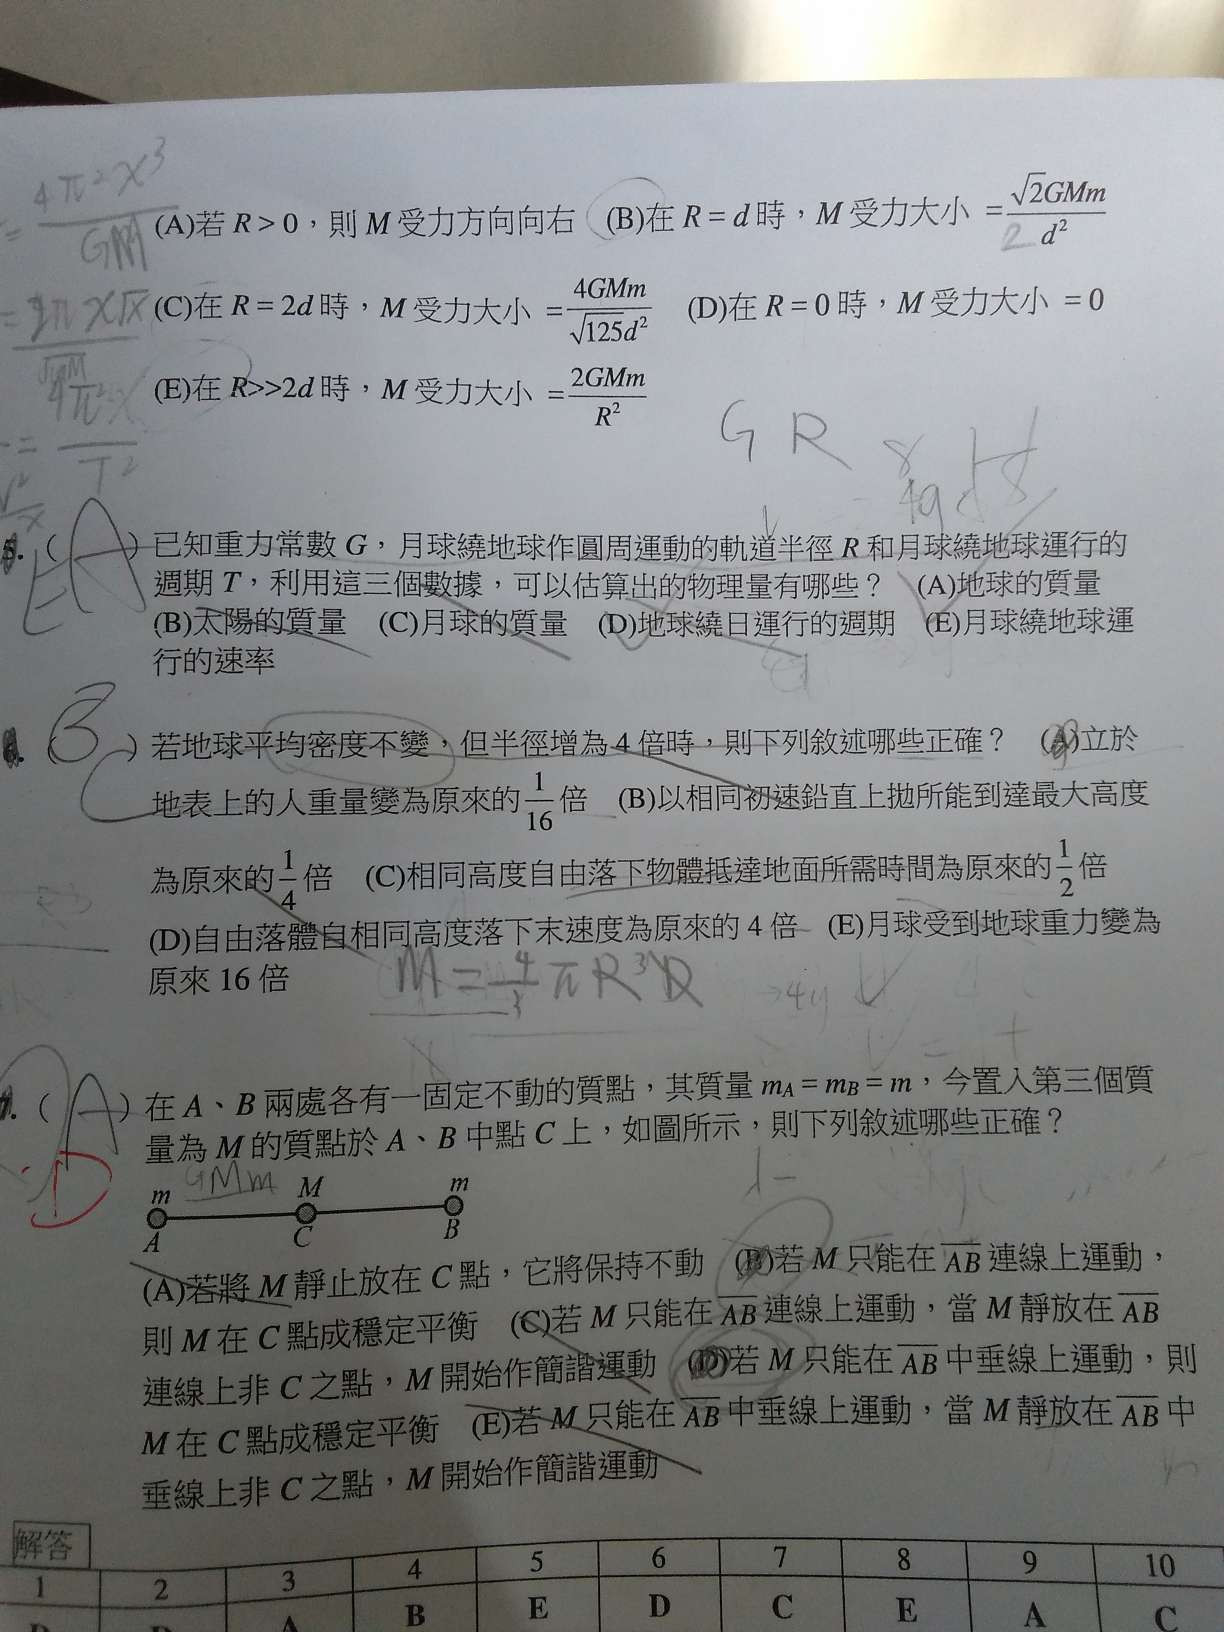 4π²x³
GM
(A)若 R > 0，則 M 受力方向向右 (B)在 R = d 時，M 受力大小 = √2GMm / d²
2
(C)在 R = 2d 時，M 受力大小 = 4GMm / √125d² (D)在 R = 0 時，M 受力大小 = 0
(E)在 R>>2d 時，M 受力大小 = 2GMm / R²
4π²x
T²
G R
AE
( )已知重力常數 G，月球繞地球作圓周運動的軌道半徑 R 和月球繞地球運行的
週期 T，利用這三個數據，可以估算出的物理量有哪些？ (A)地球的質量
(B)太陽的質量 (C)月球的質量 (D)地球繞日運行的週期 (E)月球繞地球運
行的速率
BC
( )若地球平均密度不變，但半徑增為 4 倍時，則下列敘述哪些正確？ (A)立於
地表上的人重量變為原來的 1/16 倍 (B)以相同初速鉛直上拋所能到達最大高度
為原來的 1/4 倍 (C)相同高度自由落下物體抵達地面所需時間為原來的 1/2 倍
(D)自由落體自相同高度落下末速度為原來的 4 倍 (E)月球受到地球重力變為
原來 16 倍
M = 4/3 πR³
7. ( )在 A、B 兩處各有一固定不動的質點，其質量 mA = mB = m，今置入第三個質
A
D
量為 M 的質點於 A、B 中點 C 上，如圖所示，則下列敘述哪些正確？
GMm
m M m
A C B
(A)若將 M 靜止放在 C 點，它將保持不動 (B)若 M 只能在 AB 連線上運動，
則 M 在 C 點成穩定平衡 (C)若 M 只能在 AB 連線上運動，當 M 靜放在 AB
連線上非 C 之點，M 開始作簡諧運動 (D)若 M 只能在 AB 中垂線上運動，則
M 在 C 點成穩定平衡 (E)若 M 只能在 AB 中垂線上運動，當 M 靜放在 AB 中
垂線上非 C 之點，M 開始作簡諧運動
解答
1 2 3 4 5 6 7 8 9 10
A B E D C E A C